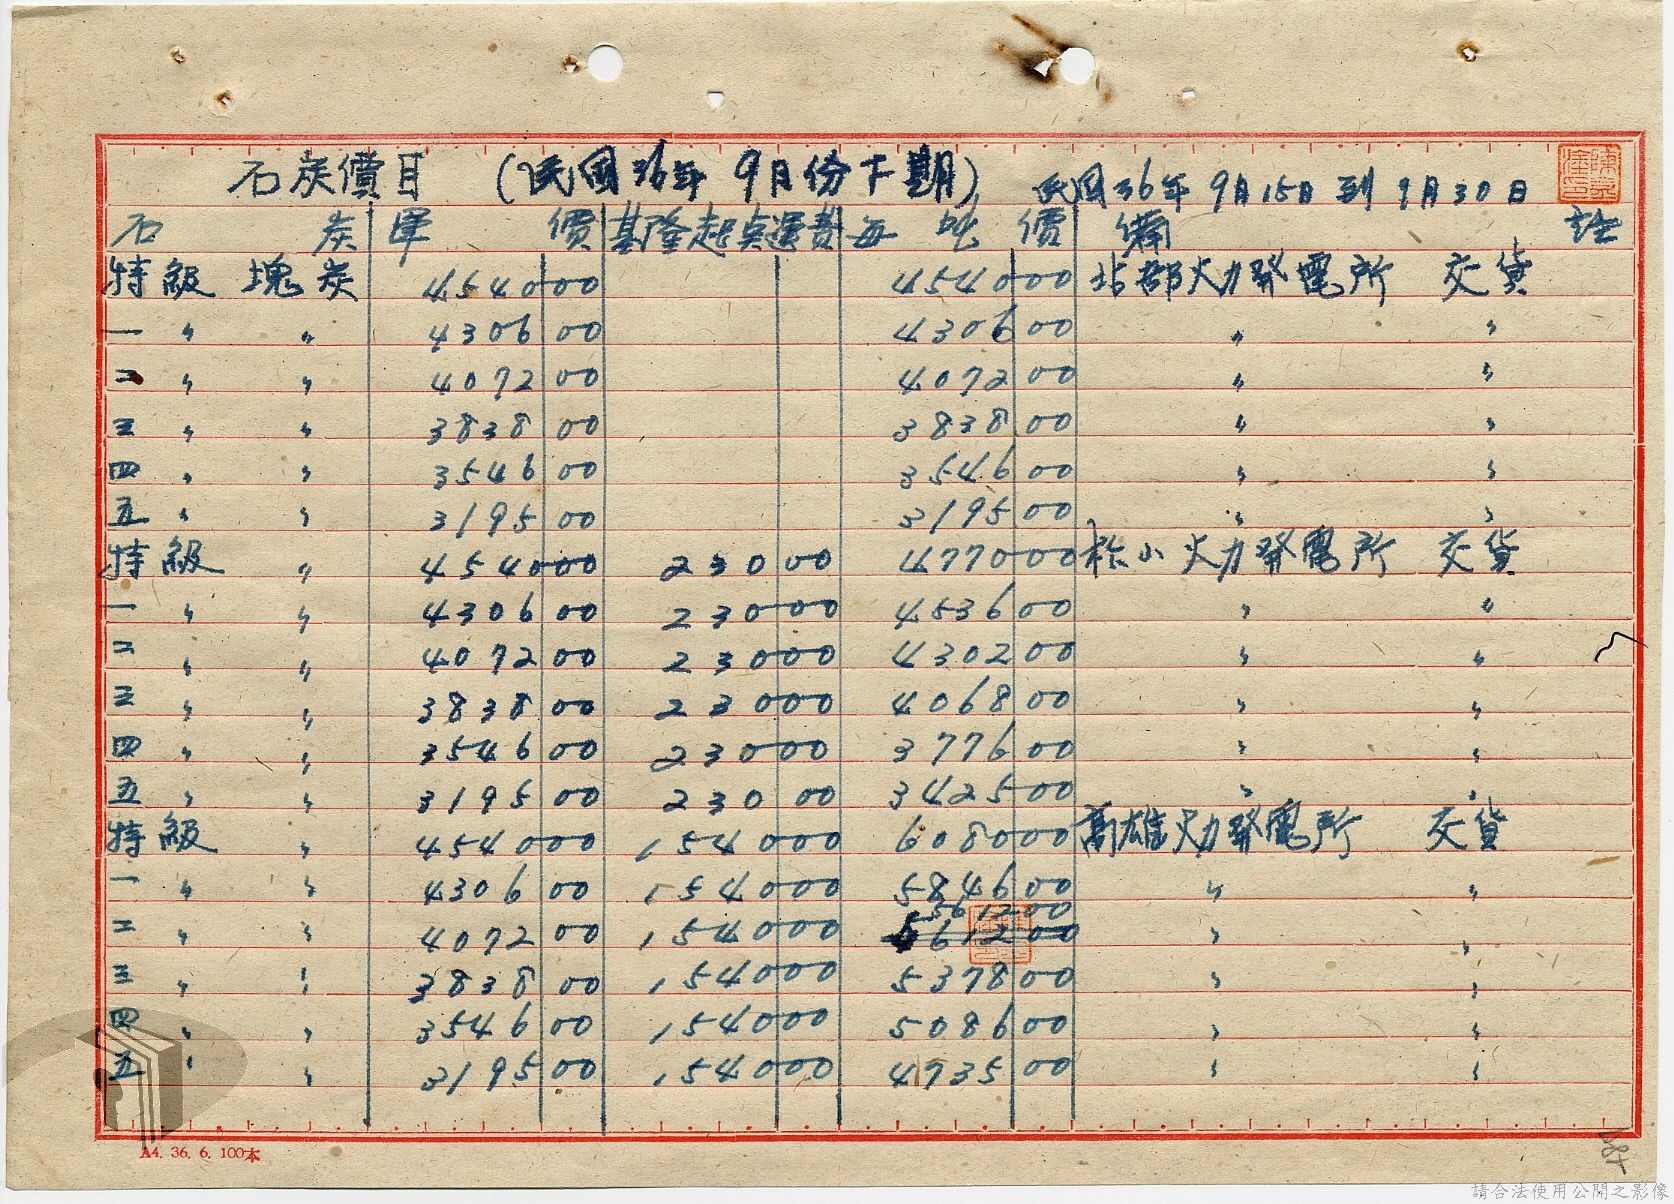 石炭價目 (民国36年 9月份下期) 民国36年 9月15日 到 9月30日
石 炭 單 價 基隆起点運費 每 吨 價 備 註
特級 塊炭 4540 00 4540 00 北部火力発電所 交貨
一 〃 〃 4306 00 4306 00 〃 〃
二 〃 〃 4072 00 4072 00 〃 〃
三 〃 〃 3838 00 3838 00 〃 〃
四 〃 〃 3546 00 3546 00 〃 〃
五 〃 〃 3195 00 3195 00 〃 〃
特級 〃 4540 00 230 00 4770 00 松山火力発電所 交貨
一 〃 〃 4306 00 230 00 4536 00 〃 〃
二 〃 〃 4072 00 230 00 4302 00 〃 〃
三 〃 〃 3838 00 230 00 4068 00 〃 〃
四 〃 〃 3546 00 230 00 3776 00 〃 〃
五 〃 〃 3195 00 230 00 3425 00 〃 〃
特級 〃 4540 00 1540 00 6080 00 高雄火力発電所 交貨
一 〃 〃 4306 00 1540 00 5846 00 〃 〃
5612 00
二 〃 〃 4072 00 1540 00 5612 00 〃 〃
三 〃 〃 3838 00 1540 00 5378 00 〃 〃
四 〃 〃 3546 00 1540 00 5086 00 〃 〃
五 〃 〃 3195 00 1540 00 4735 00 〃 〃
A4. 36. 6. 100本
請合法使用公開之影像